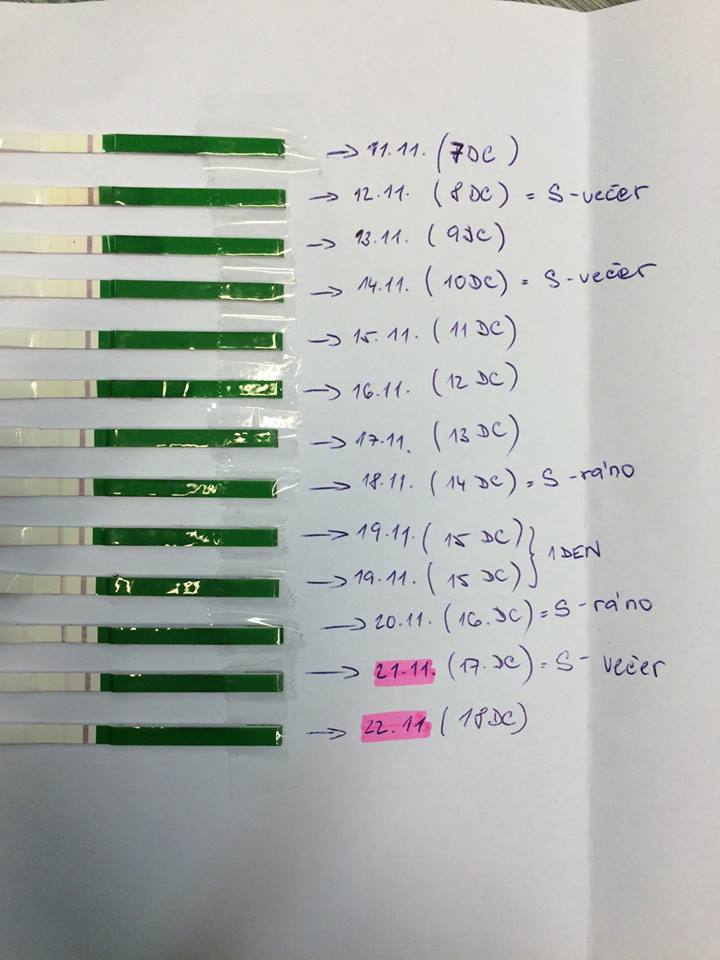 → 11.11. (7DC)
→ 12.11. (8DC) = S-večer
→ 13.11. (9DC)
→ 14.11. (10DC) = S-večer
→ 15.11. (11DC)
→ 16.11. (12DC)
→ 17.11. (13DC)
→ 18.11. (14DC) = S-ráno
→ 19.11. (15 DC) } 1 DEN
→ 19.11. (15 DC)
→ 20.11. (16.DC) = S-ráno
→ 21.11. (17.DC) = S- večer
→ 22.11 (18DC)